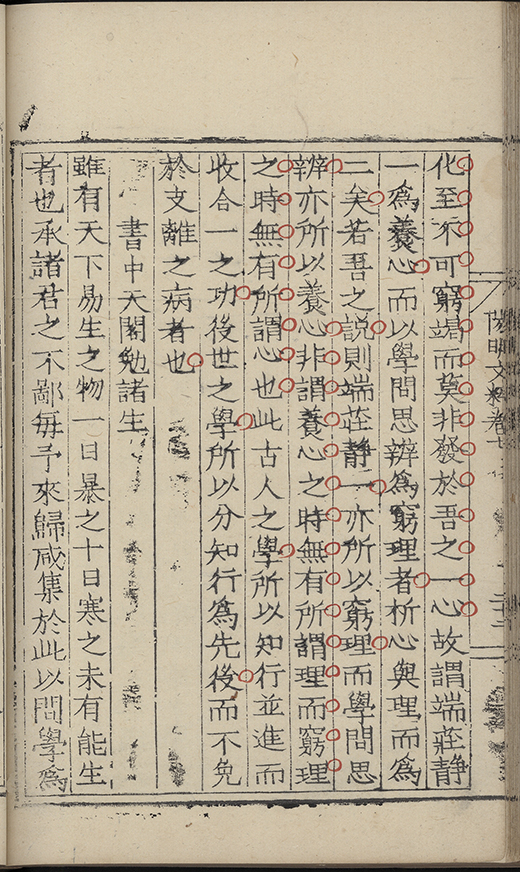 化至不可窮竭而莫非發於吾之一心故謂端莊靜
一爲養心而以學問思辨爲窮理者析心與理而爲
二矣若吾之說則端莊靜一亦所以窮理而學問思
辨亦所以養心非謂養心之時無有所謂理而窮理
之時無有所謂心也此古人之學所以知行並進而
收合一之功後世之學所以分知行爲先後而不免
於支離之病者也
書中天閣勉諸生
雖有天下易生之物一日暴之十日寒之未有能生
者也承諸君之不鄙每予來歸咸集於此以問學爲
陽明文粹卷七